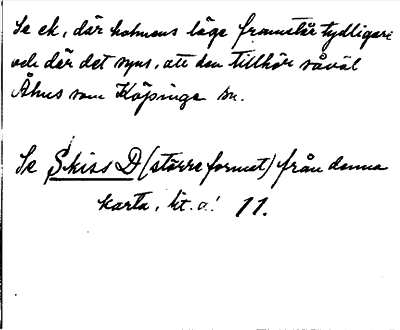 Se ek, där holmens läge framstår tydligare
och där det syns, att den tillhör såväl
Åhus som Köpinge sn.
Se Skiss D (större format) från denna
karta, kt. a! 11.